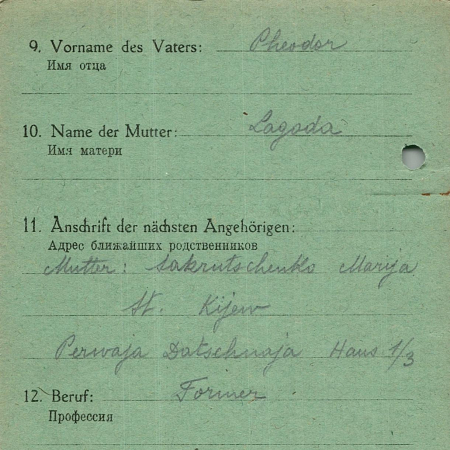 9. Vorname des Vaters: Pheodor
Имя отца
10. Name der Mutter: Lagoda
Имя матери
11. Anschrift der nächsten Angehörigen:
Адрес ближайших родственников
Mutter: Sakrutschenko Marija
St. Kijew
Perwaja Datschnaja Haus 1/3
12. Beruf: Former
Профессия